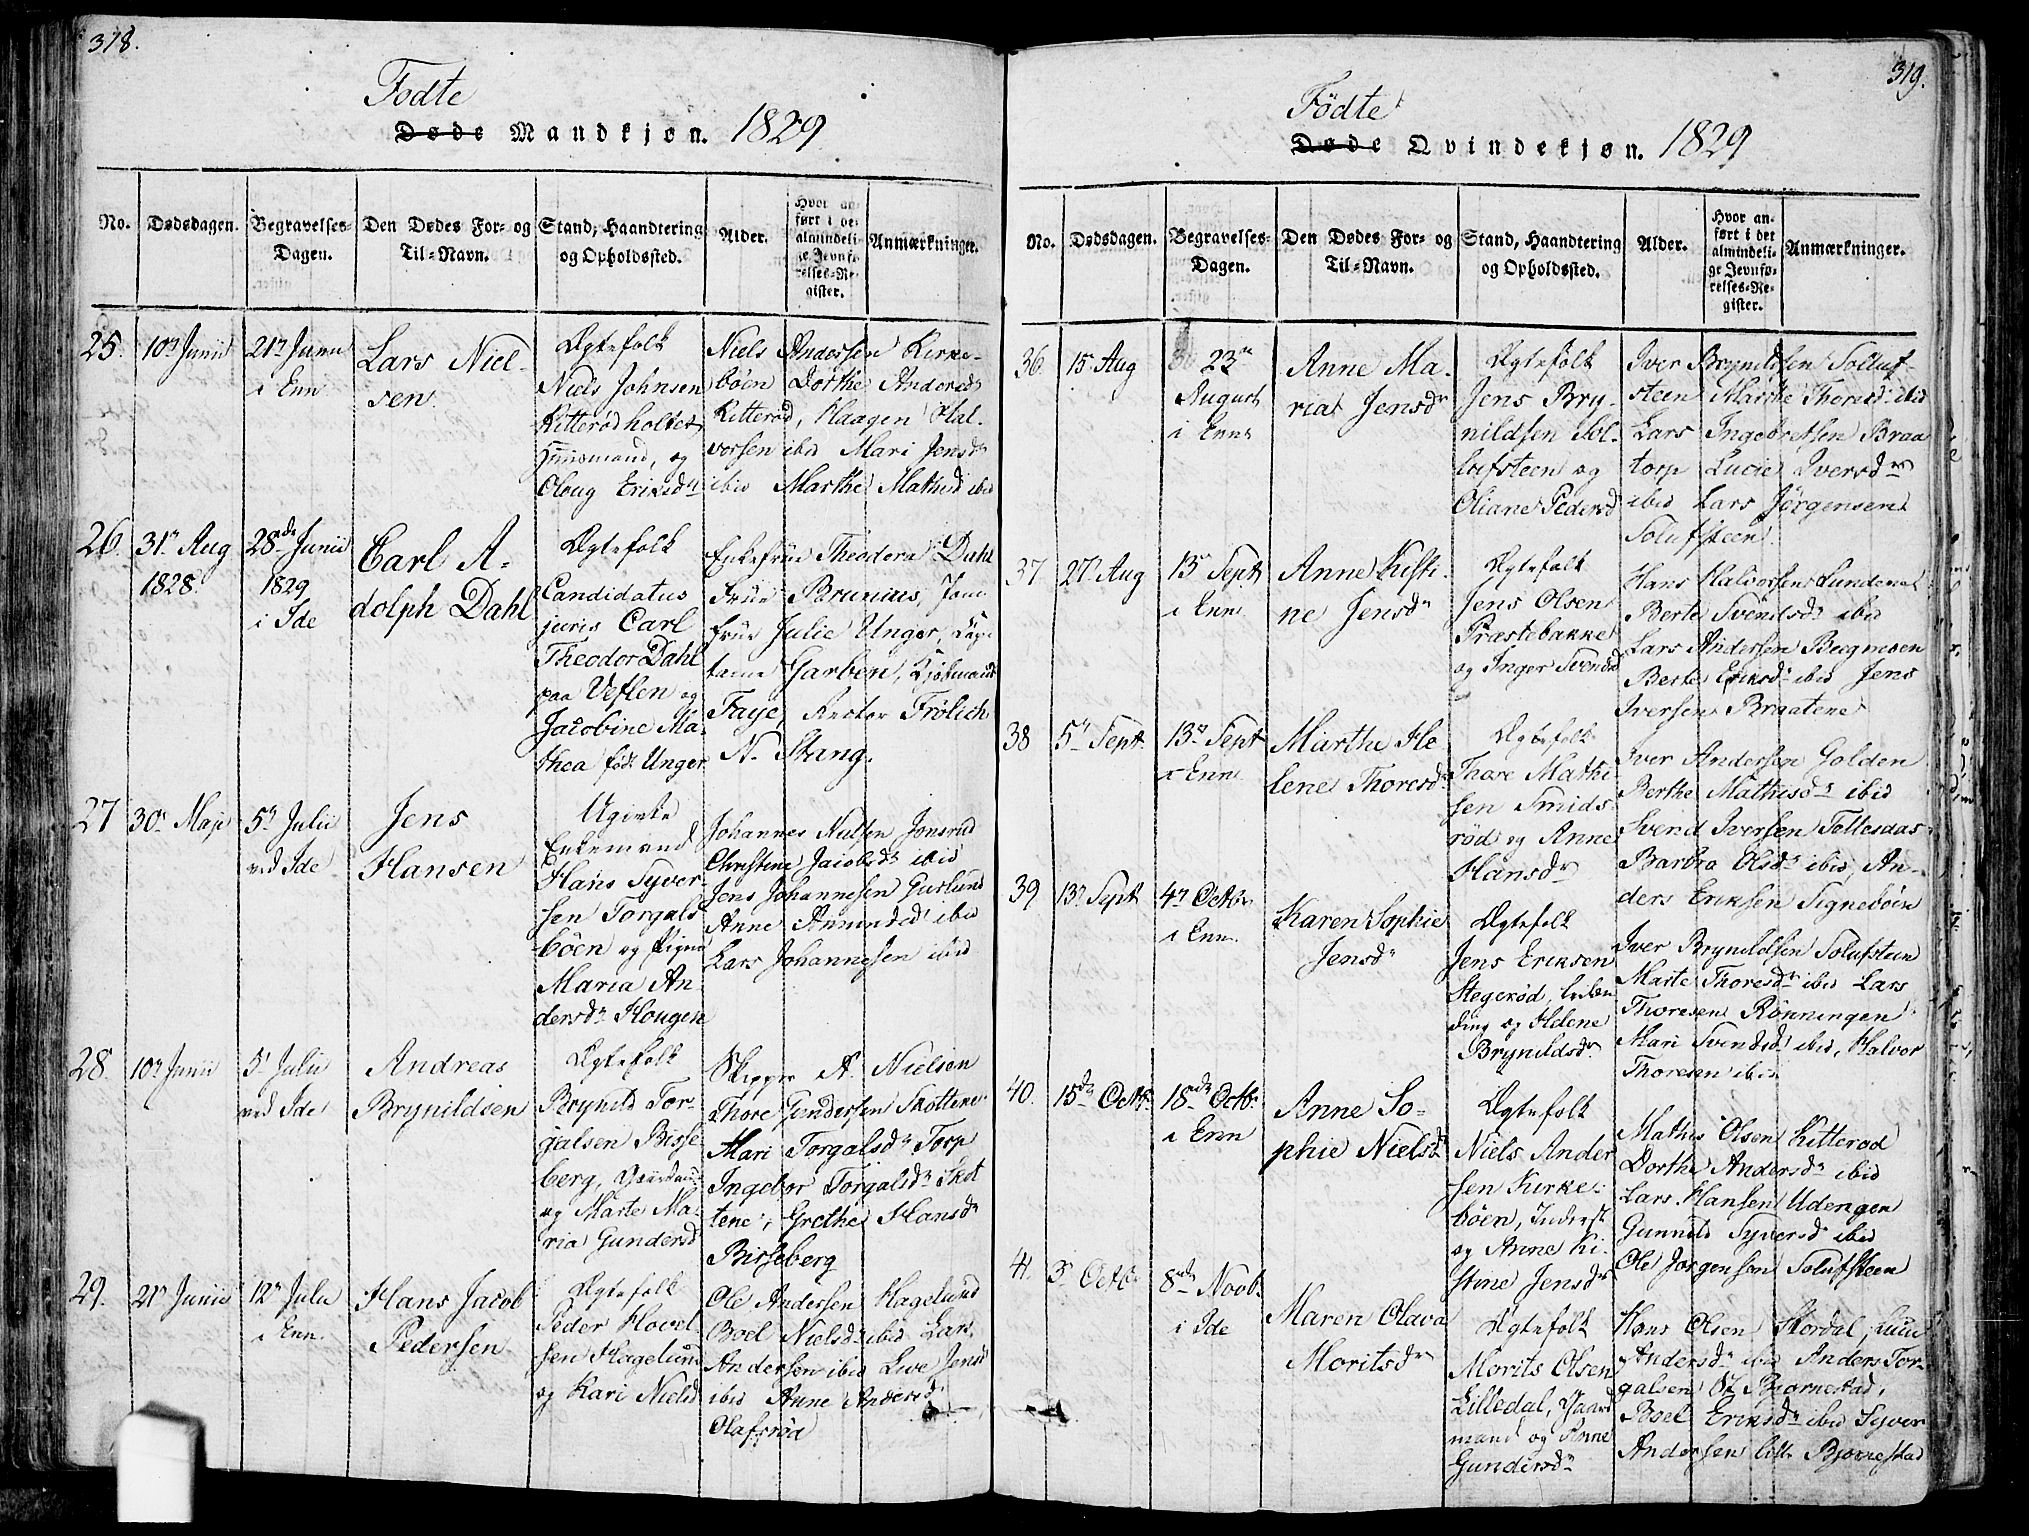 318.
Fødte
Døde Mandkjøn. 1829
No.
Dødsdagen.
Begravelses-
Dagen.
Den Dødes For- og
Til-Navn.
Stand, Haandtering
og Opholdssted.
Alder.
Hvor an-
ført i det
almindeli-
ge Jevnfø-
relses-Re-
gister.
Anmærkninger.
25.
10n Junii
21n Junii
i Enn
Lars Niel-
sen
Ægtefolk
Niels Johnsen
Kitterødholtet
Huusmand, og
Oloug Eriksdr
Niels Andersen Kirke-
bøen Dorthe Andersdr
Kitterød, Haagen Hal-
vorsen ibid Mari Jensdr
ibid Marthe Mathisd ibid
26.
31n Aug
1828.
28de Junii
1829
i Ide
Carl A-
dolph Dahl
Ægtefolk
Candidatus
juris Carl
Theodor Dahl
paa Veften og
Jacobine Ma-
thea født Unger
Enkefrue Theodora Dahl
Frue Brunius, Jom
frue Julie Unger, Cap-
taine Garben, Kjøbmændr
Faye, Rector Frølich
N. Stang.
27
30n Maji
5n Julii
ved Ide
Jens
Hansen
Ugivte
Enkemand
Hans Syver-
sen Torgals-
bøen og Pigen
Maria An-
dersdr Hougen
Johannes Nilsen Jonsrud
Christine Jacobsdr ibid
Jens Johannesen Gurlund
Anne Amundsdr ibid
Lars Johannesen ibid
28.
10n Junii
5n Julii
ved Ide
Andreas
Brynildsen
Ægtefolk
Brynild Tor-
galsen Bisse-
berg, Gaardmd
og Marte Ma-
ria Gundersd
Skipper A. Nielsen
Thore Gundersen Skottene
Mari Torgalsdr Torp
Ingebor Torgalsdr Skot
tene, Grethe Hansdr
Bisseberg
29.
21n Junii
12n Julii
i Enn.
Hans Jacob
Pedersen
Ægtefolk
Peder Hovel-
sen Hagelund
og Kari Nielsd
Ole Andersen Hagelund
Boel Nielsdr ibid Lars
Andersen ibid Live Jensd
ibid Anne Andersdr
Olafsrød
319.
Fødte
Døde Qvindekjøn. 1829
No.
Dødsdagen.
Begravelses-
Dagen.
Den Dødes For- og
Til-Navn.
Stand, Haandtering
og Opholdssted.
Alder.
Hvor an-
ført i det
almindeli-
ge Jevnfø-
relses-Re-
gister.
Anmærkninger.
36.
15 Aug
23n
August
i Enn
Anne Ma-
ria Jensdr
Ægtefolk
Jens Bry-
nildsen Sol-
lufsteen og
Oliane Pedersd
Iver Brynildsen Solluf-
steen Marthe Thoresd ibid
Lars Ingebretsen Braa
torp Lucie Iversdr
ibid Lars Jørgensen
Solufsteen
37
27 Aug
13n Sept
i Enn
Anne Kisti-
ne Jensdr
Ægtefolk
Jens Olsen
Præstebakke
og Inger Svendsd
Hans Halvorsen Lundene
Berte Svendsdr ibid
Lars Andersen Bugmoen
Berte Eriksdr ibid Jens
Iversen Braatene
38
5n Sept.
13n Sept
i Enn
Marthe He
lene Thoresdr
Ægtefolk
Thore Mathi
sen Smids-
rød og Anne
Hansdr
Iver Andersen Golden
Berthe Mathisdr ibid
Svend Iversen Tollesdas
Barbra Olsdr ibid, An-
ders Eriksen Signebøen
39
13n Sept
4n Octbr
i Enn.
Karen Sophie
Jensdr
Ægtefolk
Jens Eriksen
Stegerød,
og Helene
Brynildsdr
Iver Brynildsen Solufsteen
Marte Thoresdr ibid Lars
Thoresen Rønningen
Mari Svendsdr ibid, Halvor
Thoresen ibid
40.
15de Octbr.
18de Octbr
i Enn
Anne So-
phie Nielsdr
Ægtefolk
Niels Ander
sen Kirke-
bøen, Inderst
og Anne Ki-
stine Jensdr
Mathis Olsen Kitterød
Dorthe Andersdr ibid
Lars Hansen Udengen
Gunnild Syversdr ibid
Ole Jorgensen Solufsteen
41.
3n Octbr
8de Novbr
i Ide
Maren Olava
Moritsdr
Ægtefolk
Morits Olsen
Lilledal, Gaard
mand og Anne
Gundersdr
Hans Olsen Stordal,
Andersdr ibid Anders Tor-
galsen St Bjørnestad,
Boel Eriksdr ibid Syver
Andersen lille Bjørnestad